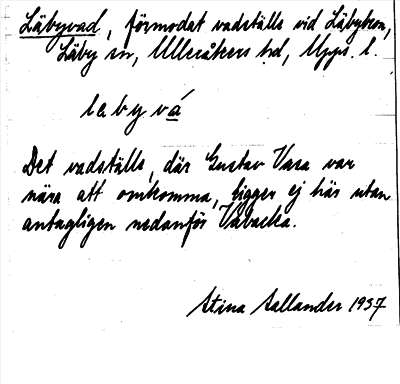 Läbyvad, förmodat vadställe vid Läbybron,
Läby sn, Ulleråkers hd, Upps. l.
la b y v á
Det vadställe, där Gustav Vasa var
nära att omkomma, ligger ej här utan
antagligen nedanför Vabacka.
Stina Sallander 1937